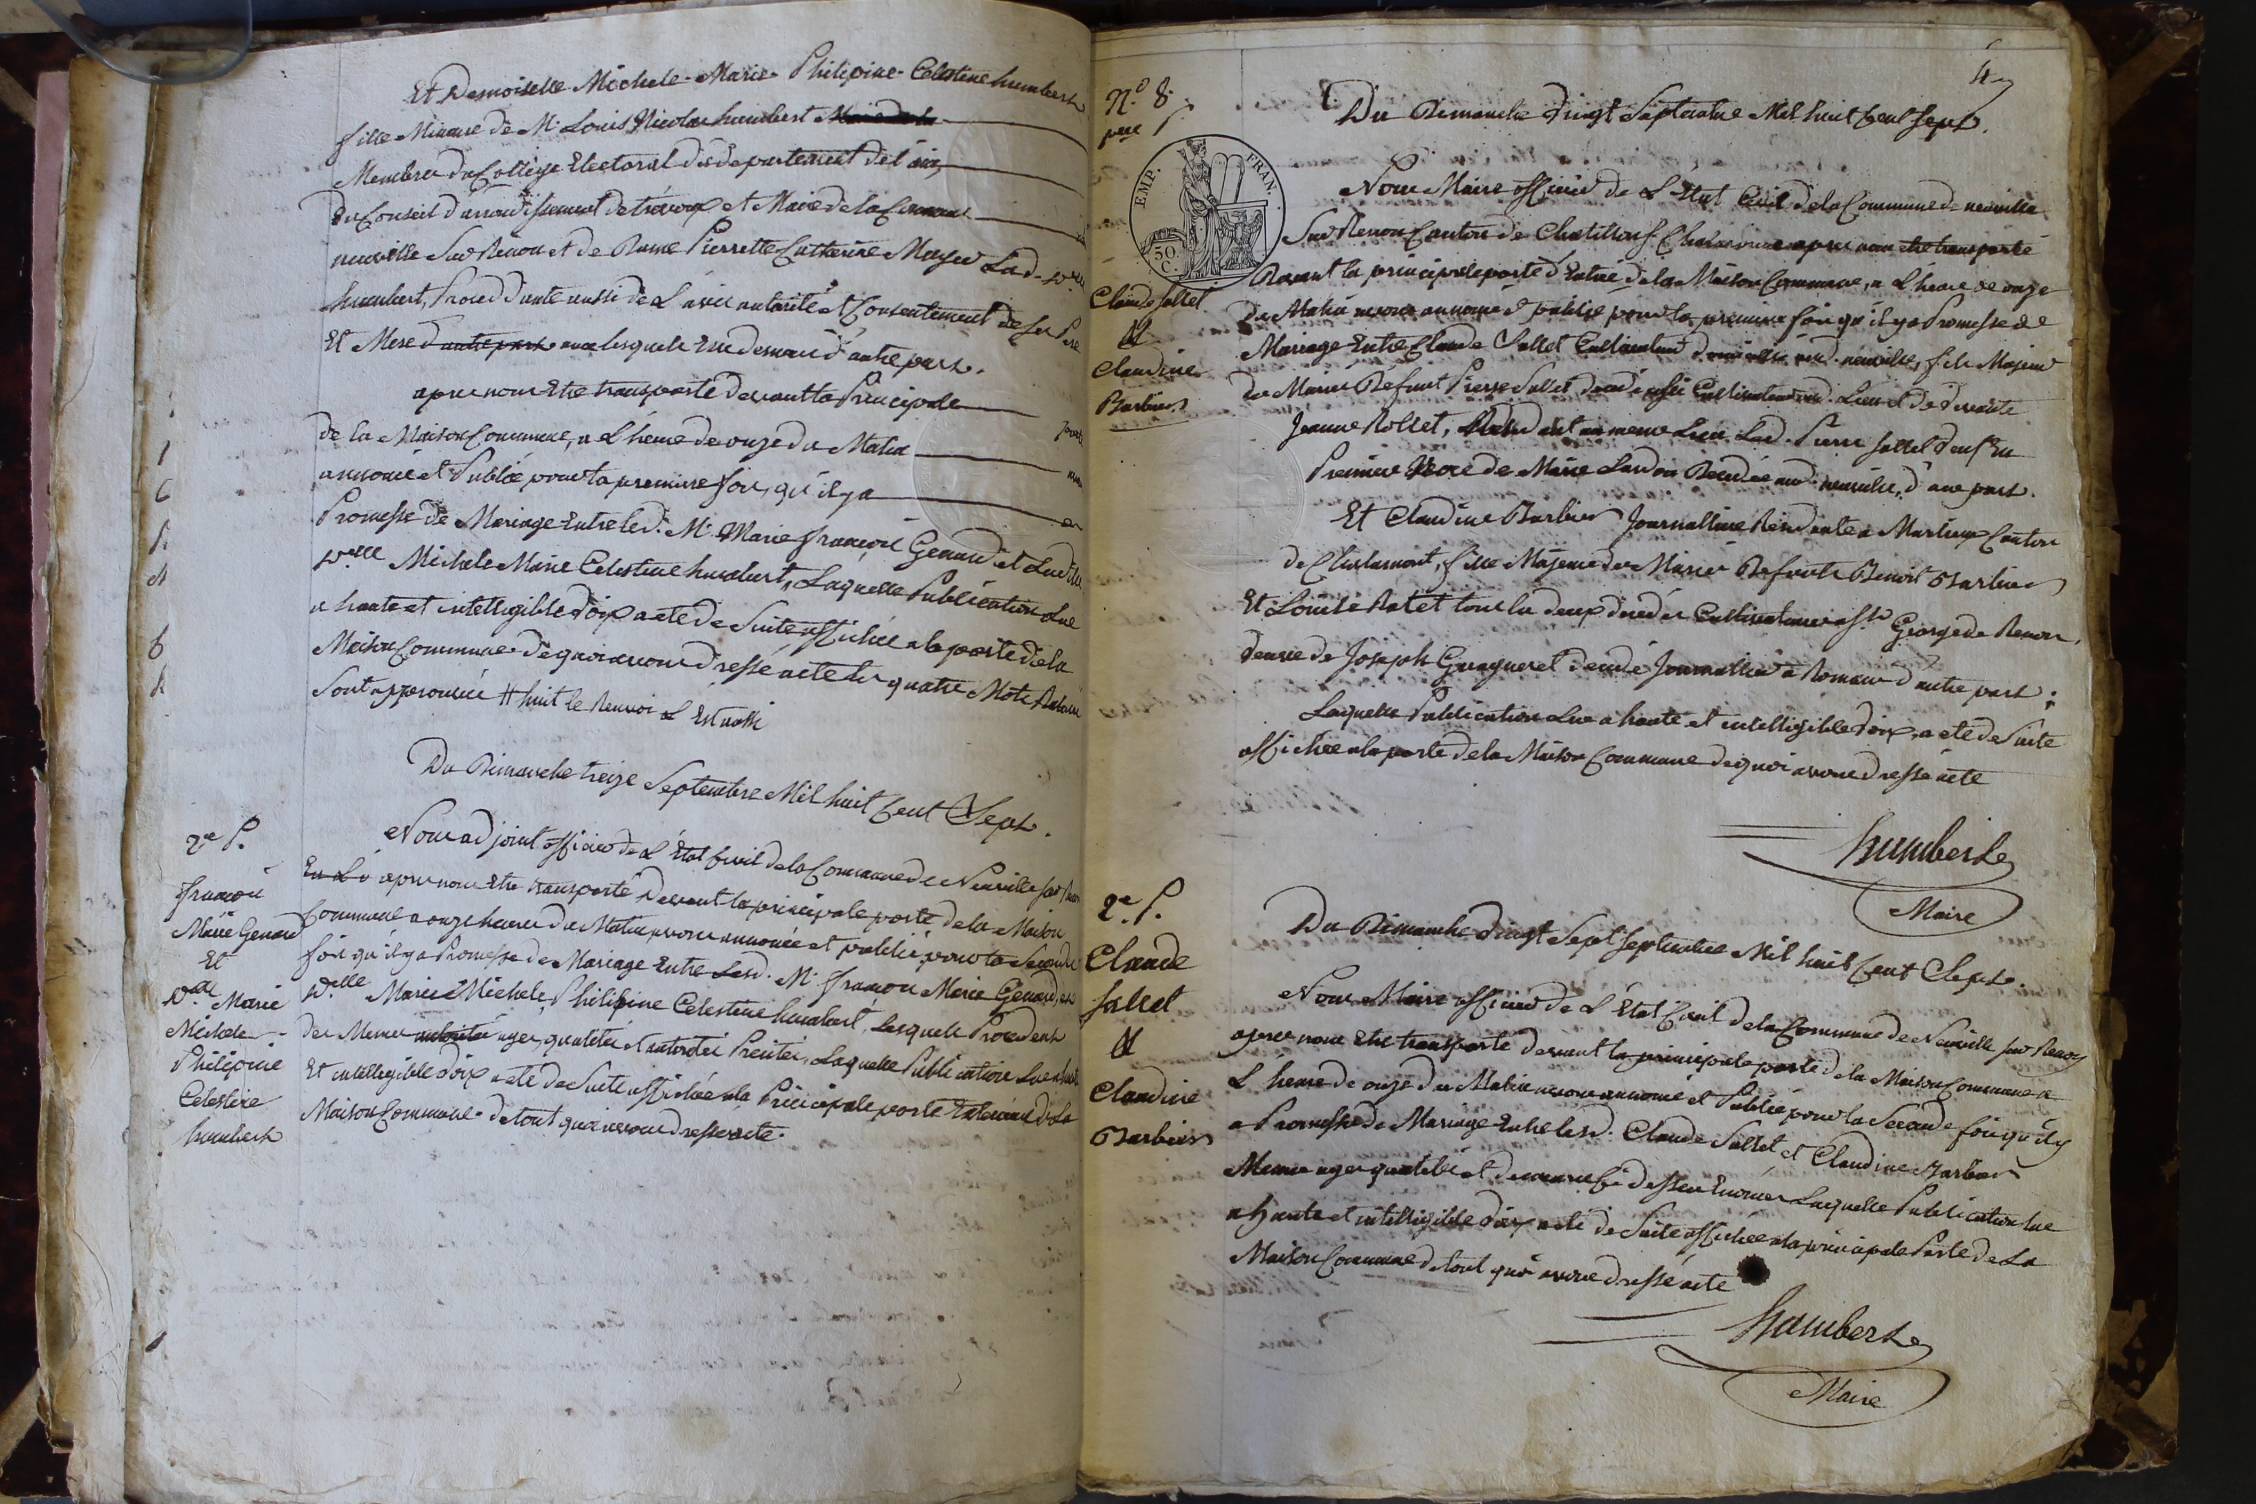 Et Demoiselle Michele Marie Philipine Celestine humbert
fille Mineure de Mr Louis Nicolas humbert Maire de la
Membre du College Electoral du departement de l'ain
Du Conseil d'arrondissement de trévoux et Maire de la Commune
neuville Sur Renon et de Dame Pierrette Catherine Moyse Lad. De
humbert, Procedante aussi de L'avis autorité et Consentement de ses Pere
Et Mere d'autre part avec lesquels Elle demeure d'autre part.
apres nous Etre transporté devant la Principale
porte
de la Maison Commune, a L'heure de onze du Matin
annoncé et Publié pour la premiere fois, qu'il y a
Promesse de Mariage Entre led. Mr. Marie françois Genard et Lad.
Delle Michele Marie Celestine humbert, Laquelle Publication Lue
a haute et intelligible voix a eté de Suite affichée a la porte de la
Maison Commune de quoi avons dressé acte les quatre Mots
Sont approuvés # huit le Renvoi L'Est aussi
Du Dimanche treize Septembre Mil huit Cent Sept.
2e P.
françois
Marie Genard
Et
Delle Marie
Michele
Philipine
Celestine
humbert
Nous adjoint officier de L'Etat Civil de la Commune de Neuville sur Renon
apres nous Etre transporté Devant la principale porte de la Maison
Commune a onze heures du Matin avons annoncé et publié pour la Seconde
fois qu'il y a Promesse de Mariage Entre Lesd. Mr. françois Marie Genard, et
Delle Marie Michele Philipine Celestine humbert, Lesquels Procedent
des Memes autorité ages, qualités et autorités Precités, Laquelle Publication Lue a haute
Et intelligible voix a eté de Suite affichée a la Principale porte Exterieure de la
Maison Commune de tout quoi avons dressé acte.
4
No. 8.
1ere P.
EMP. FRAN.
50 C.
Claude Sallet
&
Claudine
Barbier
Du Dimanche vingt Septembre Mil huit Cent Sept.
Nous Maire officier de L'Etat Civil de la Commune de neuville
Sur Renon Canton de Chatillon s. Chalaronne apres nous etre transporté
Devant la principale porte d'Entrée de la Maison Commune, a L'heure de onze
du Matin avons annoncé et publié pour la premiere fois qu'il y a Promesse de
Mariage Entre Claude Sallet Cultivateur domicilié aud. neuville, fils Majeur
de Mariés Défunt Pierre Sallet, decedé aussi Cultivateur aud. Lieu et de vivante
Jeanne Rollet, au meme Lieu Led. Pierre Sallet veuf En
Premiere Noce de Marie Landon Decedée aud. neuville, d'une part.
Et Claudine Barbier Journalliere Residente a Marlieux Canton
de Chalamont, fille Majeure des Mariés Defunts Benoit Barbier
Et Louise Ratet tous les deux decedés Cultivateurs a St. George de Renon,
veuve de Joseph Guagneret decedé Journallier a Romans d'autre part :
Laquelle Publication Lue a haute et intelligible voix, a eté de Suite
affichée a la porte de la Maison Commune de quoi avons dressé acte
humbert
Maire
2e. P.
Claude
Sallet
&
Claudine
Barbier
Du Dimanche vingt Sept Septembre Mil huit Cent Sept.
Nous Maire officier de L'Etat Civil de la Commune de Neuville sur Renon
apres nous Etre transporté devant la principale porte de la Maison Commune a
L'heure de onze du Matin avons annoncé et Publié pour la Seconde fois qu'il y
a Promesse de Mariage Entre lesd. Claude Sallet et Claudine Barbier
Memes ages qualités et demeures ci dessus Enoncés Laquelle Publication lue
a haute et intelligible voix a eté de Suite affichée a la principale Porte de La
Maison Commune de tout quoi avons dressé acte
humbert
Maire